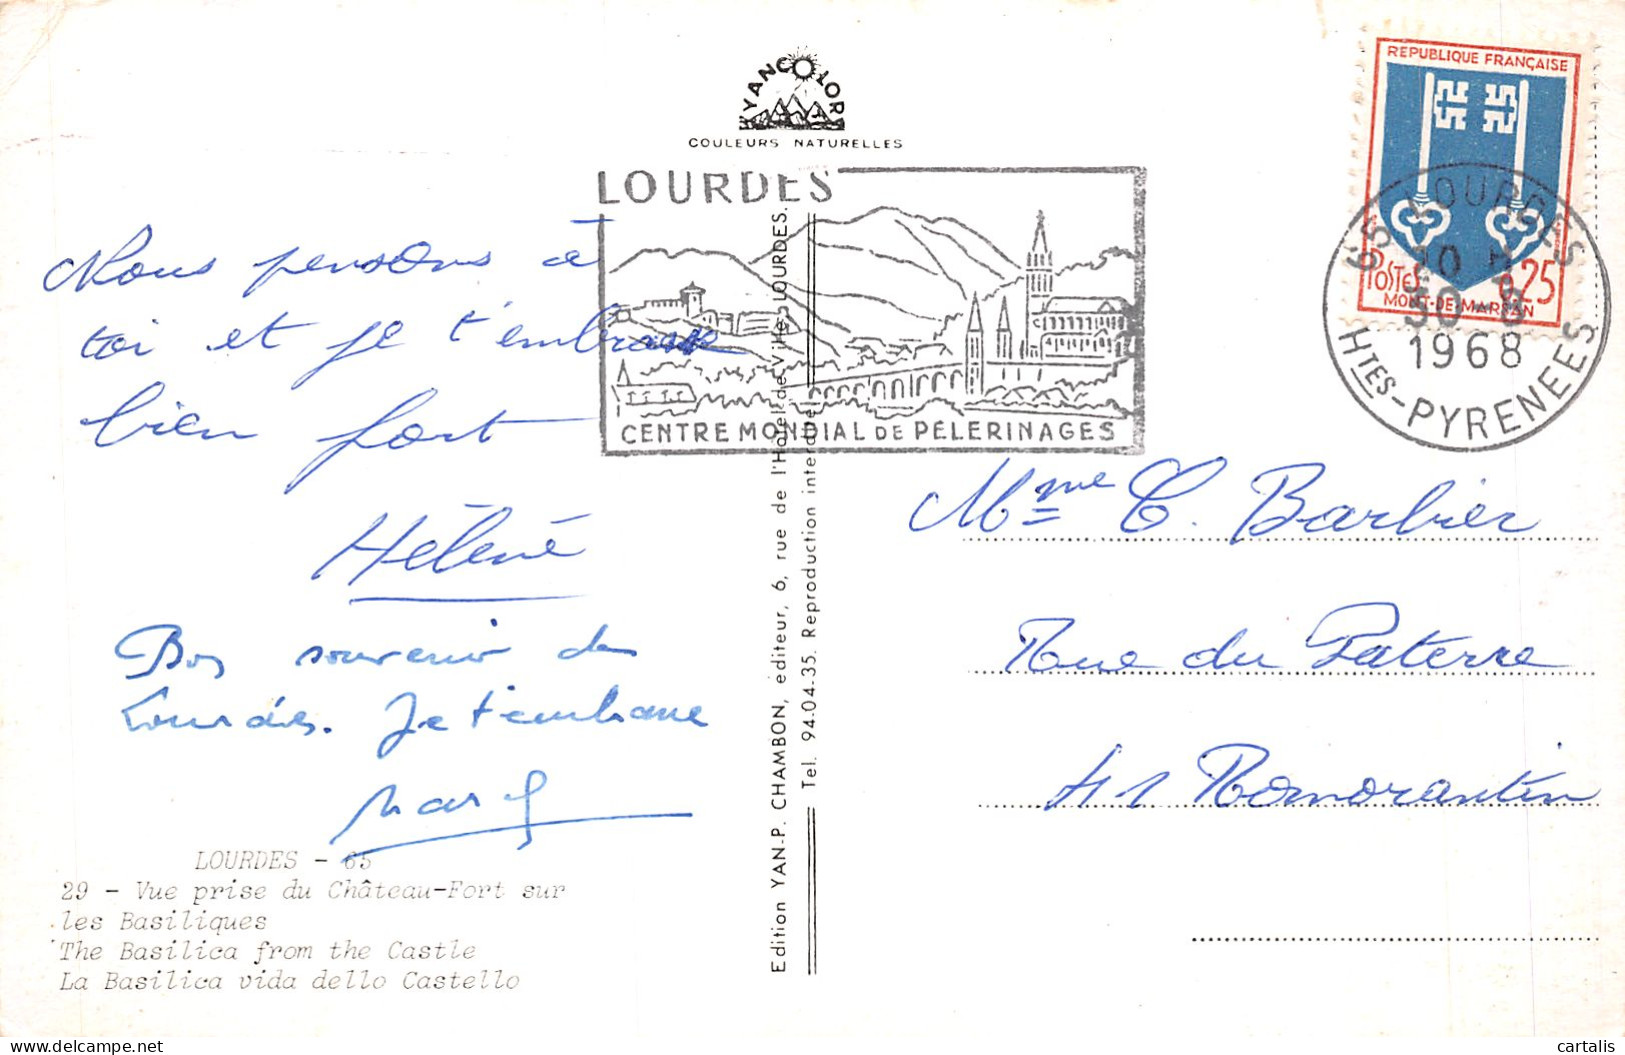 YANCOLOR
COULEURS NATURELLES
LOURDES
CENTRE MONDIAL DE PÈLERINAGES
REPUBLIQUE FRANÇAISE
POSTES 0,25
MONT-DE-MARSAN
65 LOURDES
1968
HTES-PYRENEES
Nous pensons à
toi et je t'embrasse
bien fort
Hélène
Bon souvenir de
Lourdes. Je t'embrasse
LOURDES - 65
29 - Vue prise du Château-Fort sur
les Basiliques
The Basilica from the Castle
La Basilica vida dello Castello
Edition YAN-P. CHAMBON, editeur, 6, rue de l'Hôtel de Ville, LOURDES.
Tel. 94.04.35. Reproduction interdite
Mme C. Barbier
Rue du Paterre
41 Romorantin
cartalis